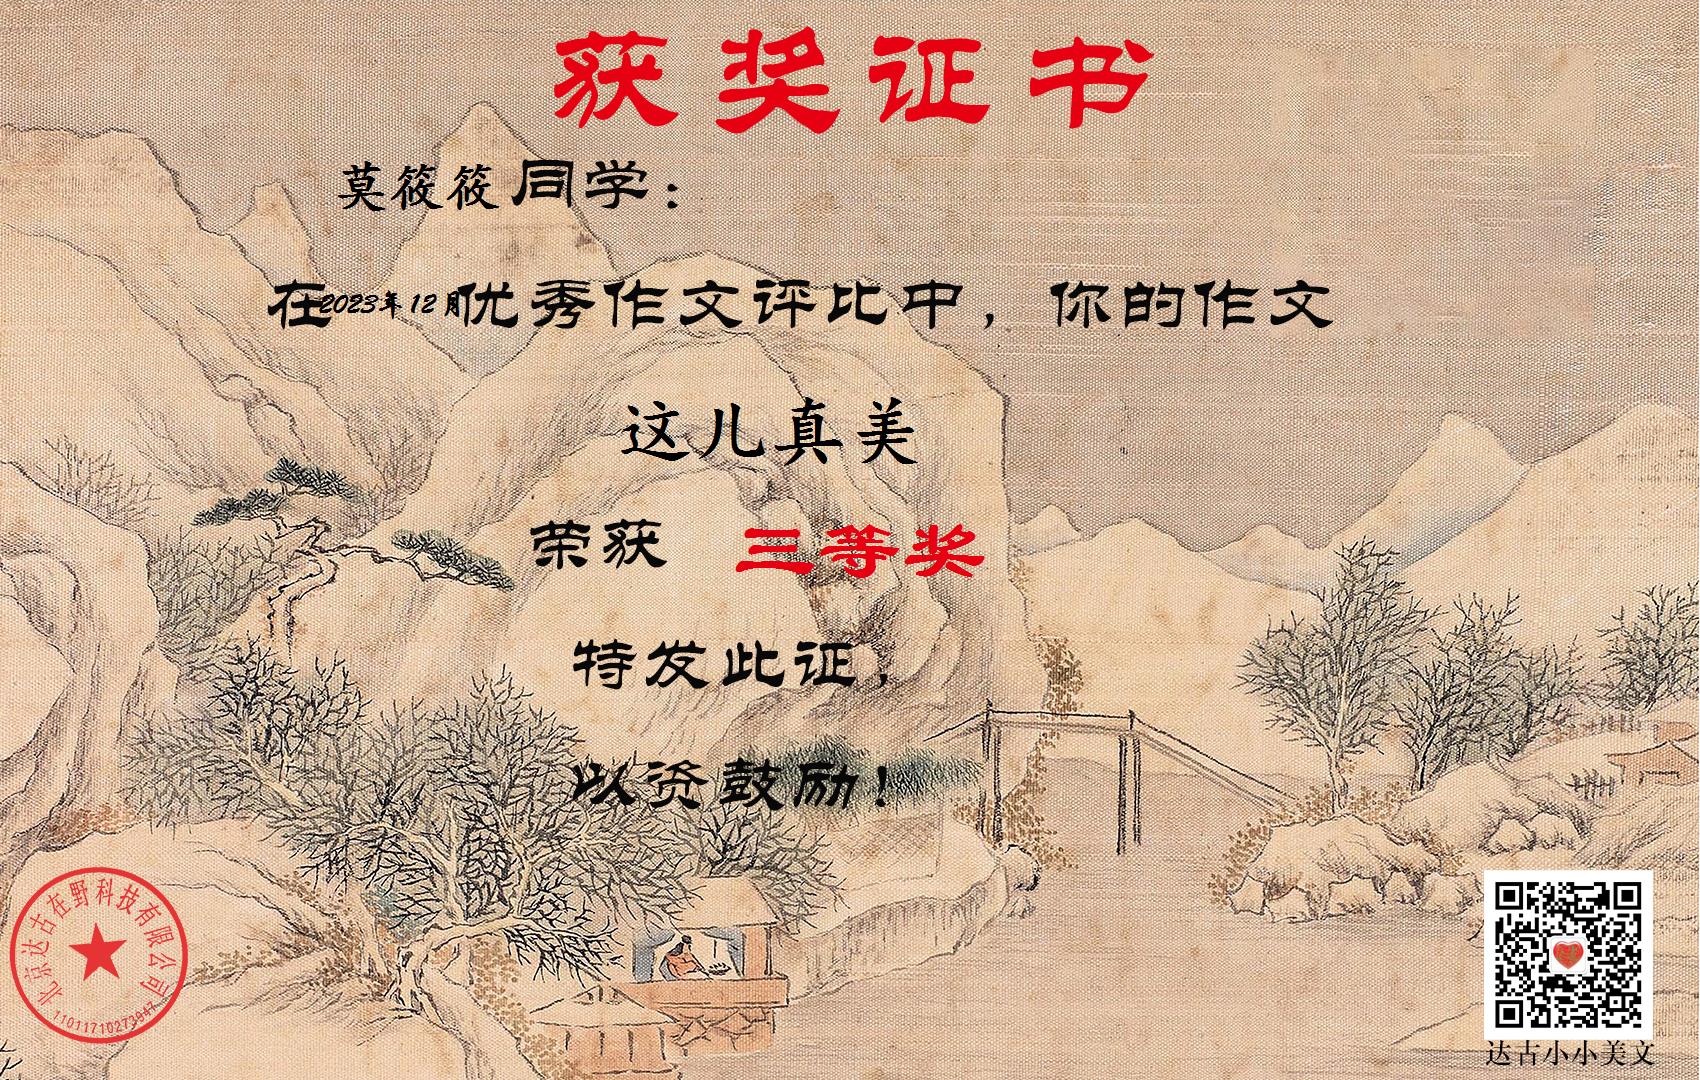 获奖证书
莫筱筱同学：
在2023年12月优秀作文评比中，你的作文
这儿真美
荣获 三等奖
特发此证，
以资鼓励！
北京达古在野科技有限公司
11011710273947
达古小小美文